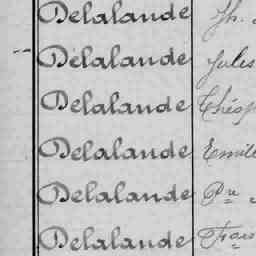 Delalande Jh.
Delalande Jules
Delalande
Delalande Emile
Delalande Pre
Delalande Fçois